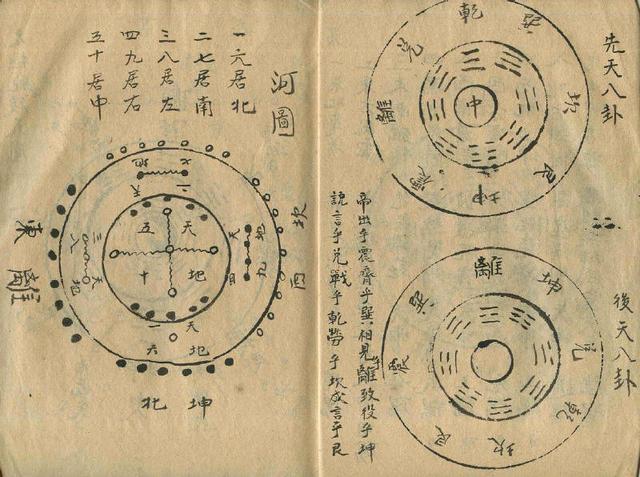 先天八卦
乾
巽
坎
艮
坤
震
離
兌
中
後天八卦
離
坤
兌
乾
坎
艮
震
巽
帝出乎震齊乎巽相見乎離致役乎坤
說言乎兌戰乎乾勞乎坎成言乎艮
河圖
一六居北
二七居南
三八居左
四九居右
五十居中
七地
二天
坎西
地九
天四
天五
地十
天一
地六
三天
八地
離東
坤北